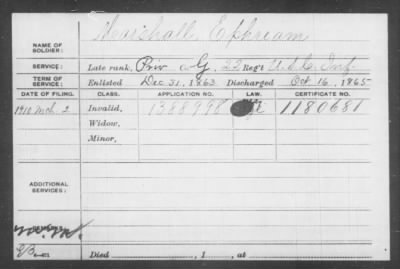 Marshall, Ephream
NAME OF
SOLDIER:
SERVICE: Late rank, Priv Co G, 22 Regt U.S.C. Inf.
TERM OF
SERVICE: Enlisted Dec 31, 1863 Discharged Oct 16, 1865
DATE OF FILING. CLASS. APPLICATION NO. LAW. CERTIFICATE NO.
1910 Mch. 2 Invalid, 1388998 1180681
Widow,
Minor,
ADDITIONAL
SERVICES:
Died , 1 , at